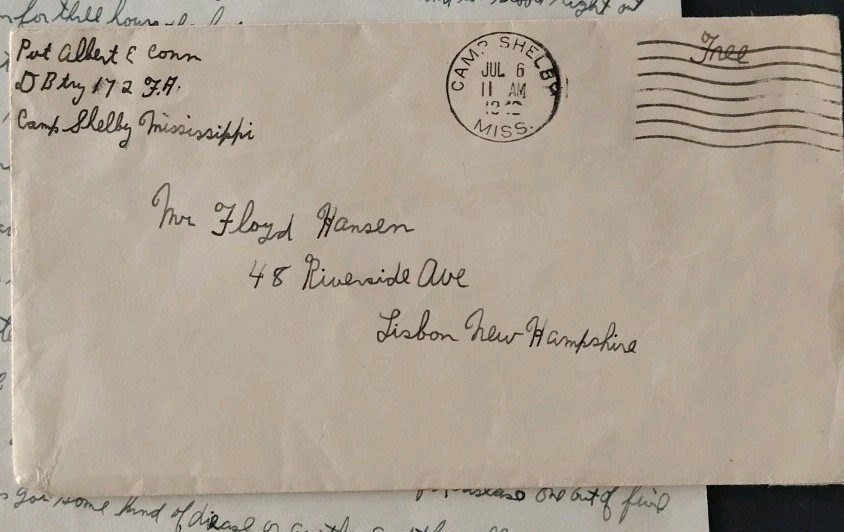 for three hours
right out
Pvt Albert E Conn
D Btry 172 F.A.
Camp Shelby Mississippi
CAMP SHELBY
JUL 6
11 AM
1942
MISS.
Free
Mr Floyd Hansen
48 Riverside Ave
Lisbon New Hampshire
some kind of disease or
one out of five